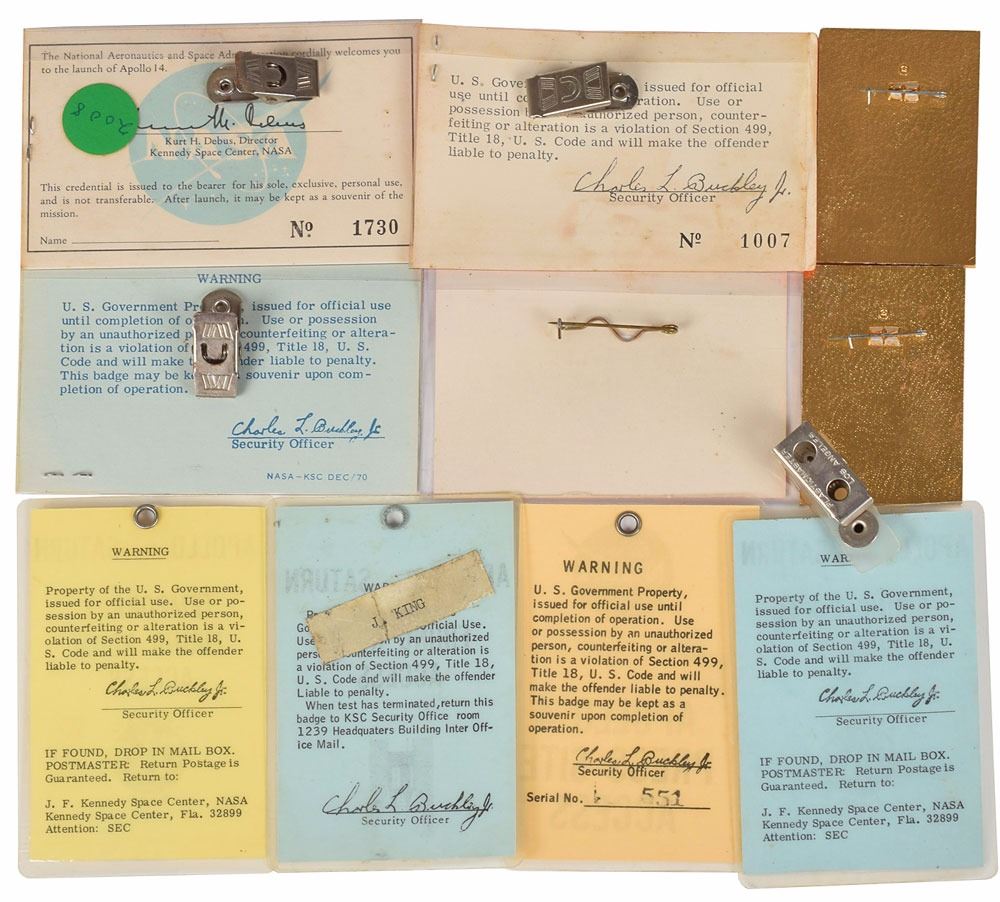 The National Aeronautics and Space Adm ation cordially welcomes you
to the launch of Apollo 14.
2008
Kurt H. Debus
Kurt H. Debus, Director
Kennedy Space Center, NASA
This credential is issued to the bearer for his sole, exclusive, personal use,
and is not transferable. After launch, it may be kept as a souvenir of the
mission.
Name
Nº 1730
U. S. Gove issued for official
use until co ration. Use or
possession b authorized person, counter-
feiting or alteration is a violation of Section 499,
Title 18, U. S. Code and will make the offender
liable to penalty.
Charles L. Buckley Jr.
Security Officer
Nº 1007
WARNING
U. S. Government Pro issued for official use
until completion of o Use or possession
by an unauthorized p counterfeiting or altera-
tion is a violation of 499, Title 18, U. S.
Code and will make t nder liable to penalty.
This badge may be ke souvenir upon com-
pletion of operation.
Charles L. Buckley Jr.
Security Officer
NASA-KSC DEC/70
PLASTICMASTER
LOS ANGELES
WARNING
Property of the U. S. Government,
issued for official use. Use or po-
session by an unauthorized person,
counterfeiting or alteration is a vi-
olation of Section 499, Title 18, U.
S. Code and will make the offender
liable to penalty.
Charles L. Buckley Jr.
Security Officer
IF FOUND, DROP IN MAIL BOX.
POSTMASTER: Return Postage is
Guaranteed. Return to:
J. F. Kennedy Space Center, NASA
Kennedy Space Center, Fla. 32899
Attention: SEC
WAR
J. KING
Go fficial Use.
Use n by an unauthorized
pers ounterfeiting or alteration is
a violation of Section 499, Title 18,
U. S. Code and will make the offender
Liable to penalty.
When test has terminated,return this
badge to KSC Security Office room
1239 Headquaters Building Inter Off-
ice Mail.
Charles L. Buckley Jr.
Security Officer
WARNING
U. S. Government Property,
issued for official use until
completion of operation. Use
or possession by an unauthorized
person, counterfeiting or altera-
tion is a violation of Section 499,
Title 18, U. S. Code and will
make the offender liable to penalty.
This badge may be kept as a
souvenir upon completion of
operation.
Charles L. Buckley Jr.
Security Officer
Serial No. 551
WAR
Property of the U. S. Government,
issued for official use. Use or po-
session by an unauthorized person,
counterfeiting or alteration is a vi-
olation of Section 499, Title 18, U.
S. Code and will make the offender
liable to penalty.
Charles L. Buckley Jr.
Security Officer
IF FOUND, DROP IN MAIL BOX.
POSTMASTER: Return Postage is
Guaranteed. Return to:
J. F. Kennedy Space Center, NASA
Kennedy Space Center, Fla. 32899
Attention: SEC